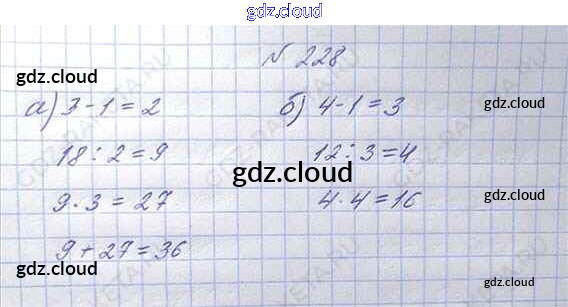 gdz.cloud
№ 228
gdz.cloud
а) 3-1=2
б) 4-1=3
gdz.cloud
18:2=9
12:3=4
gdz.cloud
9·3=27
4·4=16
gdz.cloud
9+27=36
gdz.cloud
gdz.cloud